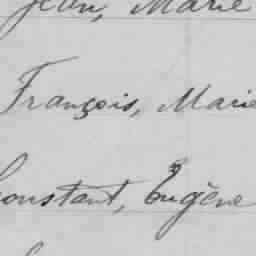 Jean, Marie
François, Marie
Constant, Eugène